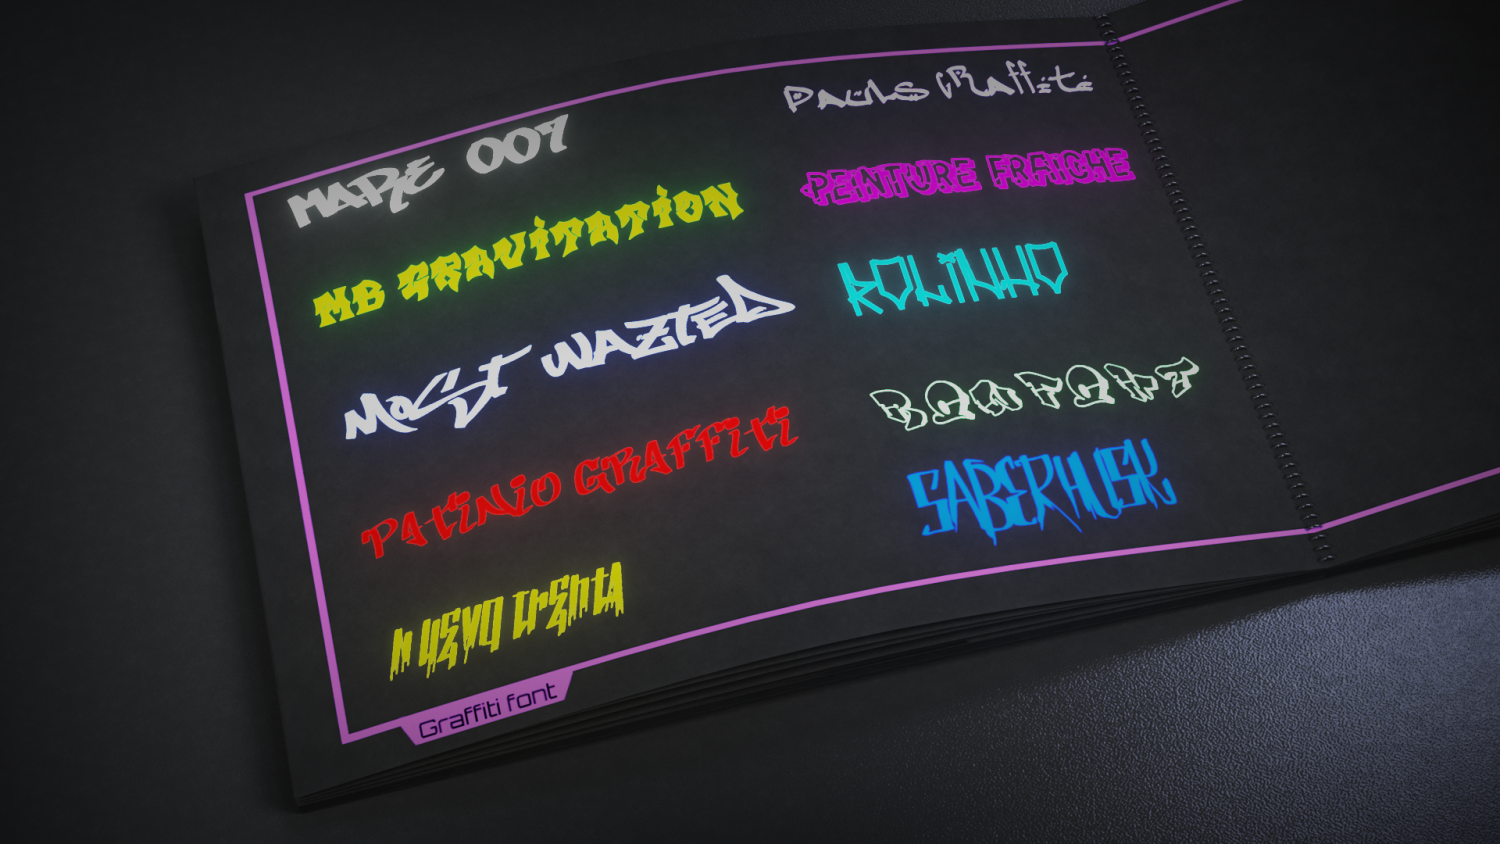 MARE 007
MB GRAVITATION
MOST WAZTED
PATINIO GRAFFITI
NUEVO TRENTA
PAULS GRaffiti
PEINTURE FRAICHE
ROLINHO
RAW FONT
SABERHUSK
Graffiti font